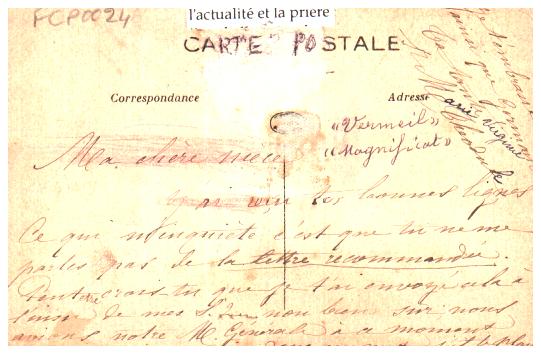 FCP0024
l'actualité et la prière
CARTE POSTALE
Correspondance
Adresse
Je t'embrasse
ainsi que
Sr M Marie Virginie
"Vermeil"
"Magnificat"
Ma chère nièce
reçu tes bonnes lignes
Ce qui m'inquiète c'est que tu ne me
parles pas de la lettre recommandée.
Peut être crois tu que je t'ai envoyé cela à
l'insu de mes S. non bien sur nous
avions notre M. Générale à ce moment